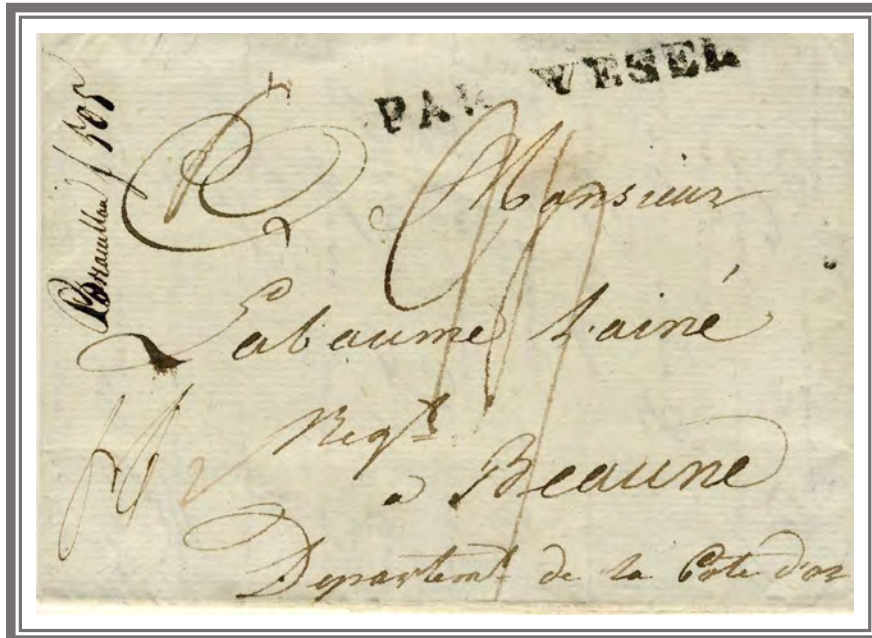 PAR WESEL
Monsieur
Labaume L'ainé
Negt.
a Beaune
Departemt. de la Cote d'or